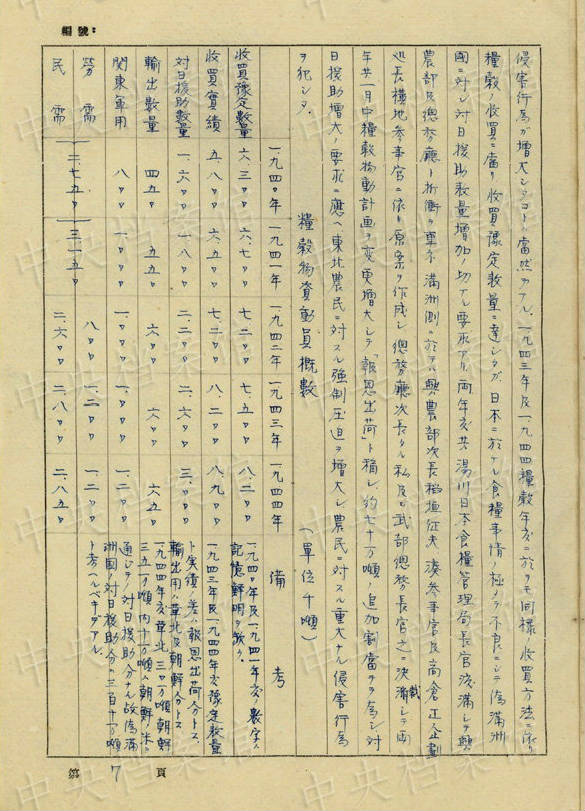 編號：
侵害行為が増大シタコトハ當然デアル。一九四三年及一九四四糧穀年亥ニ於テモ同様ノ收買方法ニ依リ
糧穀ノ收買ニ當リ收買豫定数量ニ達シタガ、日本ニ於ケル食糧事情ノ極メテ不良ニシテ偽満洲
國ニ対シ対日援助数量増加ノ切ナル要求アリ、両年亥共湯川日本食糧管理局長官渡満シテ興
農部及總務廳ト折衝ノ要求満洲側ニ於テハ興農部次長稲垣征夫、湊参事官及高倉正企劃
処長横地参事官ニ依リ原案ヲ作成シ總務廳次長タル私及ビ武部總務長官之ニ決裁シテ両
年共一月中糧穀物動計画ヲ変更増大シテ「報恩出荷」ト稱シ約七十万噸ノ追加割當テヲ為シ対
日援助増大ノ要求ニ應ヘ東北農民ニ対スル強制圧迫ヲ増大シ農民ニ対スル重大ナル侵害行為
ヲ犯シタ。
糧穀物資動員概数
（單位千噸）
一九四〇年 一九四一年 一九四二年 一九四三年 一九四四年 備考
收買豫定数量 六.三〇〇 六.七〇〇 七.二〇〇 七.五〇〇 八.二〇〇
收買實績 五.八〇〇 六.五〇〇 七.二〇〇 八.二〇〇 八.九〇〇
対日援助数量 一.六〇〇 一.八〇〇 二.二〇〇 二.六〇〇 三.〇〇〇
輸出数量 四五〇 五五〇 六〇〇 六〇〇 六五〇
関東軍用 八〇〇 一.〇〇〇 一.〇〇〇 一.〇〇〇 一.二〇〇
勞需 八〇〇 一.二〇〇 一.二〇〇
民需 二.七五〇 三.一五〇 二.六〇〇 二.八〇〇 二.八五〇
一九四〇年及一九四一年亥ノ数字ハ
記憶鮮明ヲ欠ク。
一九四三年及一九四四年亥豫定数量
ト実績ノ差ハ報恩出荷分トス。
輸出用ハ華北及朝鮮分トス
一九四四年亥華北三〇万噸朝鮮
三五万噸内十万噸ハ朝鮮ノ米ヲ
通シテノ対日援助分ナル故偽満
洲國ノ対日援助分ハ三百十万噸
ト考ヘルベキデアル。
第 7 頁